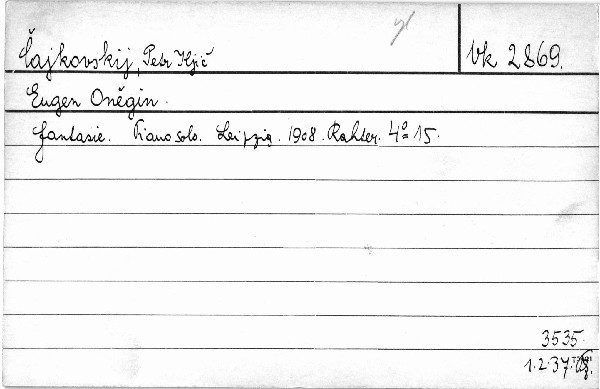 Čajkovskij, Petr Iljič
Vk 2869.
Eugen Oněgin.
fantasie. Piano solo. Leipzig. 1908. Rahter. 4º 15.
3535.
1.2.37.